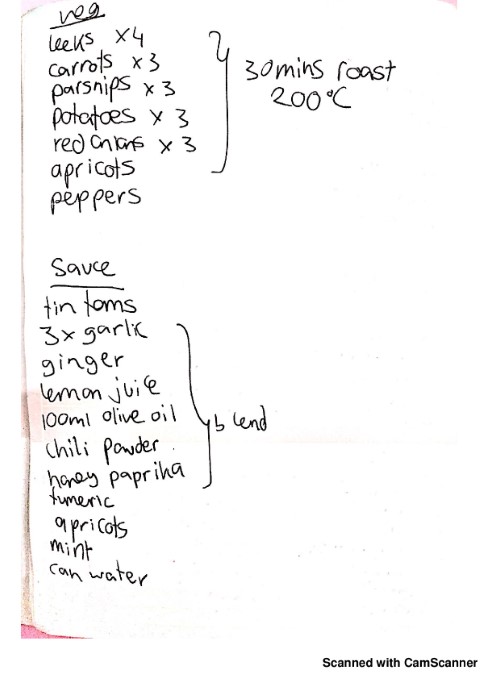 veg
leeks x4
carrots x 3
parsnips x 3
potatoes x 3
red onions x 3
apricots
peppers
30mins roast
200°C
Sauce
tin toms
3x garlic
ginger
lemon juice
100ml olive oil
chili powder
honey paprika
tumeric
apricots
mint
can water
blend
Scanned with CamScanner